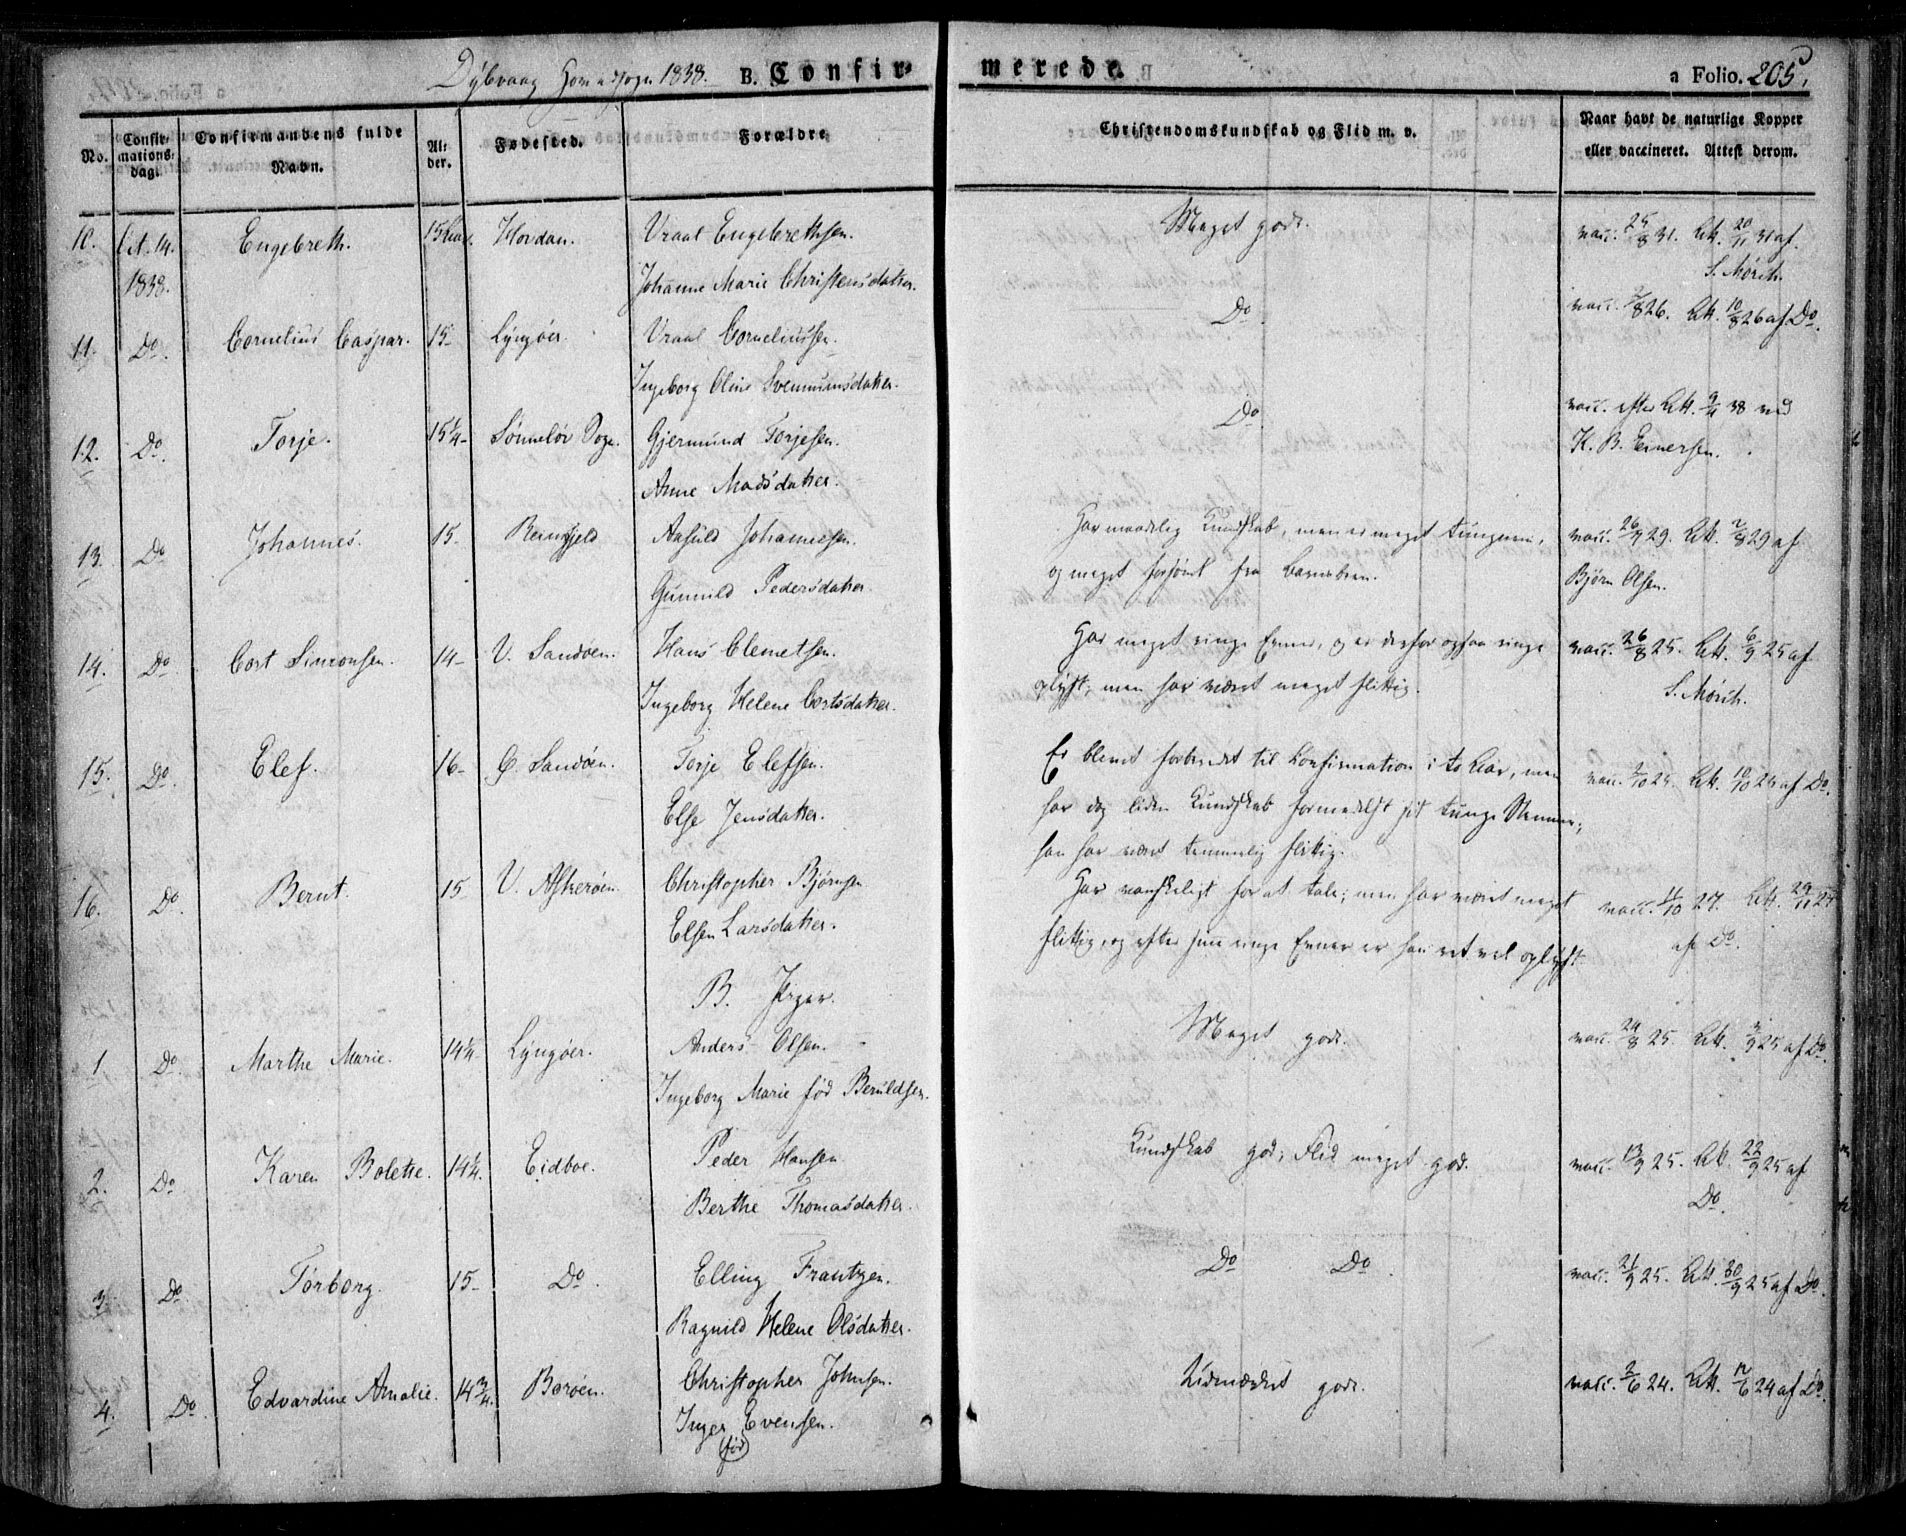 Dybvaag Hovedsogn 1838. B. Confirmerede. a Folio. 205.
No. Confirmationsdag. Confirmandens fulde Navn. Alder. Fødested. Forældre. Christendomskundskab og Flid m. v. Naar havt de naturlige Kopper eller vaccineret. Attest derom.
10. Oct. 14. Engebreth. 15 Hovdan. Vraal Engebrethsen. Meget godt. vacc. 25/8 31. Att. 20/11 31 af
1838. Johanne Marie Christensdatter. S. Mørch.
11. Do. Cornelius Caspar. 15 Lyngøer. Vraal Corneliussen. Do. vacc. 2/8 26. Att. 10/8 26 af Do.
Ingeborg Oline Svennumsdatter.
12. Do. Torje. 15 1/4 Sønneløv Sogn. Gjermund Torjesen. Do. vacc. efter Att. 9/4 38 ved
Anne Madsdatter. K. B. Evensen.
13. Do Johannes. 15. Reinsfjeld Aasuld Johannesen. Har maadelig Kundskab, men er meget tungnem, vacc. 26/7 29. Att. 2/8 29 af
Gunnild Pedersdatter. og meget forsømt fra Barndommen. Bjørn Olsen.
14. Do. Cort Simonsen. 14 V. Sandøen. Hans Clemetsen. Har meget ringe Evner, og er derfor ogsaa ringe vacc. 26/8 25. Att. 6/9 25 af
Ingeborg Helene Cortsdatter. oplyst; men har været meget flittig. S. Mørch.
15. Do. Elef. 16 Ø. Sandøen. Torje Elefsen. Er blevet forberedt til Confirmation i to Aar, men vacc. 2/10 24. Att. 10/10 24 af Do.
Else Jensdatter. har dog liden Kundskab formedelst sit tunge Nemme;
han har været temmelig flittig.
16. Do. Bernt. 15 V. Askerøen. Christopher Bjørnsen. Har vanskeligt for at tale; men har været meget vacc. 11/10 27. Att. 29/11 27
Elsen Larsdatter. flittig, og efter sine ringe Evner er han ret vel oplyst. af Do.
B. Piger.
1 Do. Marthe Marie. 14 1/4 Lyngøer. Anders Olsen. Meget godt. vacc. 24/8 25. Att. 4/9 25 af Do.
Ingeborg Marie fød Beruldsen.
2. Do. Karen Bolette. 14 1/4. Eidboe. Peder Hansen Kundskab god; Flid meget god. vacc. 13/9 25. Att. 22/9 25 af
Berthe Thomasdatter. Do.
3 Do Torborg. 15 Do. Elling Frantzen. Do Do. vacc. 21/9 25. Att. 30/9 25 af Do.
Ragnild Helene Olsdatter.
4. Do. Edvardine Amalie. 14 3/4. Borøen. Christopher Johnsen. Udmærket godt. vacc. 2/6 24. Att. 12/6 24 af Do.
Inger (fød) Evensen.